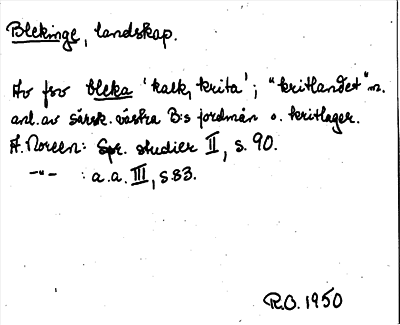 Blekinge, landskap.
Av fsv bleka 'kalk, krita'; "kritlandet"
anl. av särsk. västra B:s jordmån o. kritlager.
A. Noreen: Spr. studier II, s. 90.
-"- : a.a. III, s. 83.
R.O. 1950